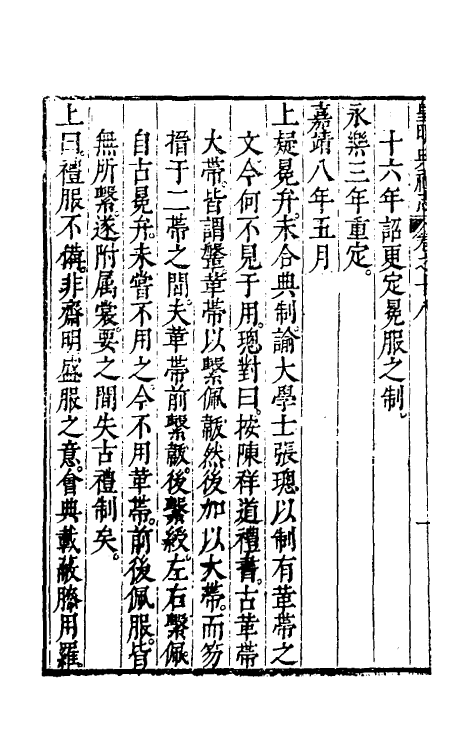 皇明典禮志 卷之十八 一
十六年詔更定冕服之制。
永樂三年重定。
嘉靖八年五月
上疑冕弁。未合典制諭大學士張璁以制有革帶之
文今何不見于用。璁對曰。按陳祥道禮書。古革帶
大帶。皆謂鞶革帶以繫佩韍然後加以大帶。而笏
搢于二帶之間。夫革帶前繫韍。後繫綬。左右繫佩
自古冕弁未嘗不用之。今不用革帶。前後佩服。皆
無所繫。遂附属裳要之間失古禮制矣。
上曰。禮服不備。非齋明盛服之意。會典載蔽膝用羅